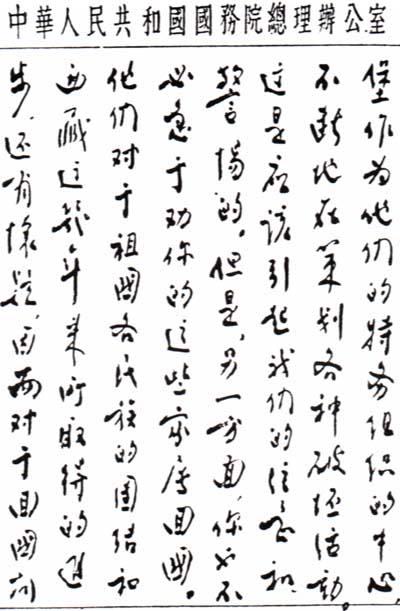 中華人民共和國國務院總理辦公室
堡作为他们的特务组织的中心
不断地在策划各种破坏活动。
这是应该引起我们的注意和
警惕的。但是，另一方面，你也不
必急于劝你的这些亲属回國。
他们对于祖國各民族的团结和
西藏这几年来所取得的进
步，还有怀疑，因而对于回國问